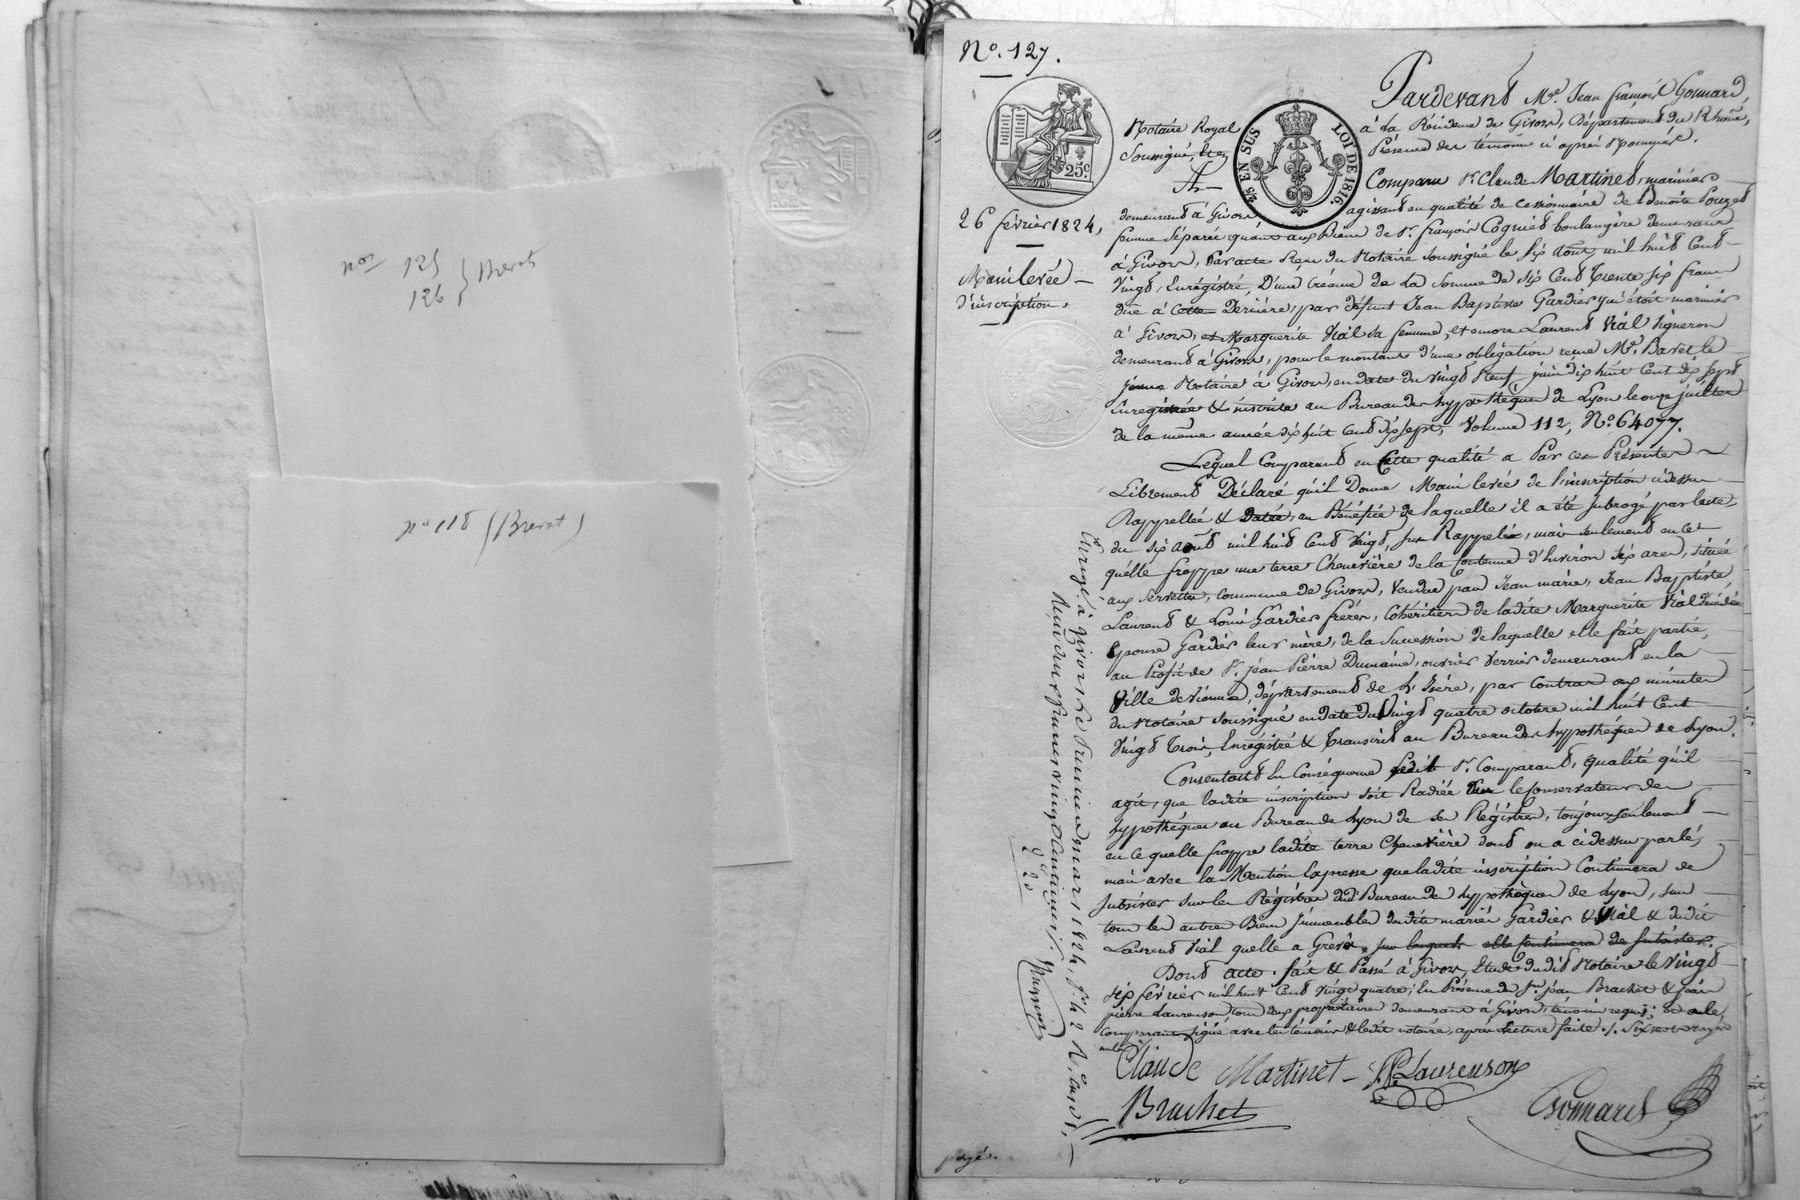 nos 125
126 } Brevets
n° 118 (Brevet)
N°. 127.
25c.
2/5 EN SUS LOI DE 1816.
26 février 1824,
Mainlevée
d'inscription.
Pardevant Me. Jean françois Gonnard,
Notaire Royal à la Résidence de Givors, Département du Rhône,
Soussigné, Présence des témoins ci après nommés.
Comparu Sr. Claude Martinet, marinier
demeurant à Givors agissant en qualité de cessionnaire de Benoite Pouzet
femme séparée quant aux Biens de Sr. françois Cognet boulangère demeurant
à Givors, Par acte Reçu du Notaire soussigné le six Aout, mil huit Cent
Vingt, Enrégistré, D'une Créance de La Somme de six Cent trente six francs
due à Cette Dernière, par défunt Jean Baptiste Gardier qui étoit marinier
à Givors, et Marguerite Vial sa femme, et encore Laurent Vial Vigneron
demeurant à Givors, pour le montant d'une obligation reçue Me. Baret le
jeune Notaire à Givors, en date du Vingt Neuf juin dix huit Cent dix sept
Enregistrée & inscrite au Bureau des hypothèques de Lyon le onze juillet
de la même année dix huit Cent dix sept, Volume 112, N° 64077.
Lequel Comparant en Cette qualité a Par ces Présentes
Librement Déclaré qu'il Donne Main levée de l'inscription cidessus
Rappellée & Datée, au Bénéfice de laquelle il a été subrogé par l'acte
du six Aout mil huit Cent Vingt, sus Rappelé, mais seulement en ce
qu'elle frappe une terre Chenevière de la Contenue d'Environ six ares, située
aux Servettes, Commune de Givors, Vendue par Jean marie, Jean Baptiste,
Laurent & Louis Gardier frères, Cohéritiers de ladite Marguerite Vial décédée
Epouse Gardier leur mère, de la Succession de laquelle elle fait partie,
au Profit de Sr. Jean Pierre Dumaine, ouvrier Verrier demeurant en la
Ville de Vienne, département de L'Isère, par Contrat aux minutes
du Notaire Soussigné en date du Vingt quatre octobre mil huit Cent
Vingt Trois, Enregistré & Transcrit au Bureau des hypothèques de Lyon.
Consentant En Conséquence ledit Sr. Comparant, qualité qu'il
agit, que ladite inscription soit Radiée Par le Conservateur des
hypothèques au Bureau de Lyon de ses Régistres, toujours seulement
en ce quelle frappe ladite terre Chenevière dont on a cidessus parlé,
mais avec la Mention Expresse que ladite inscription Continuera de
subsister sur les Régistres dudt Bureau des hypothèques de Lyon, sur
tous les autres Biens Immeubles desdits mariés Gardier & Vial & dudit
Laurent Vial quelle a Grevés sur lesquels elle Continuera de Subsister.
Dont acte. fait & Passé à Givors, Etude dudit Notaire le Vingt
six février mil huit Cent Vingt quatre; En Présence de Srs. jean Brachet & jean
pierre Laurenson tous deux propriétaires demeurant à Givors, témoins requis; & le
comparant signé avec les témoins & ledit notaire, après Lecture faite ./. Six mots rayés
nuls
Claude Martinet JP Laurenson
Brachet Gonnard
Enregé. à Givors, le premier mars 1824, fo. 42
Reçu deux francs vingt centimes.
2
20
payé.